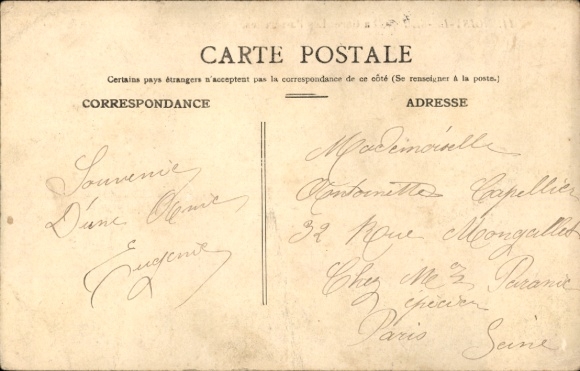 CARTE POSTALE
Certains pays étrangers n'acceptent pas la correspondance de ce côté (Se renseigner à la poste.)
CORRESPONDANCE
ADRESSE
Souvenir
D'une Amie
Eugenie
Mademoiselle
Antoinette Capellier
32 Rue
Chez Mr
epicier
Paris Seine